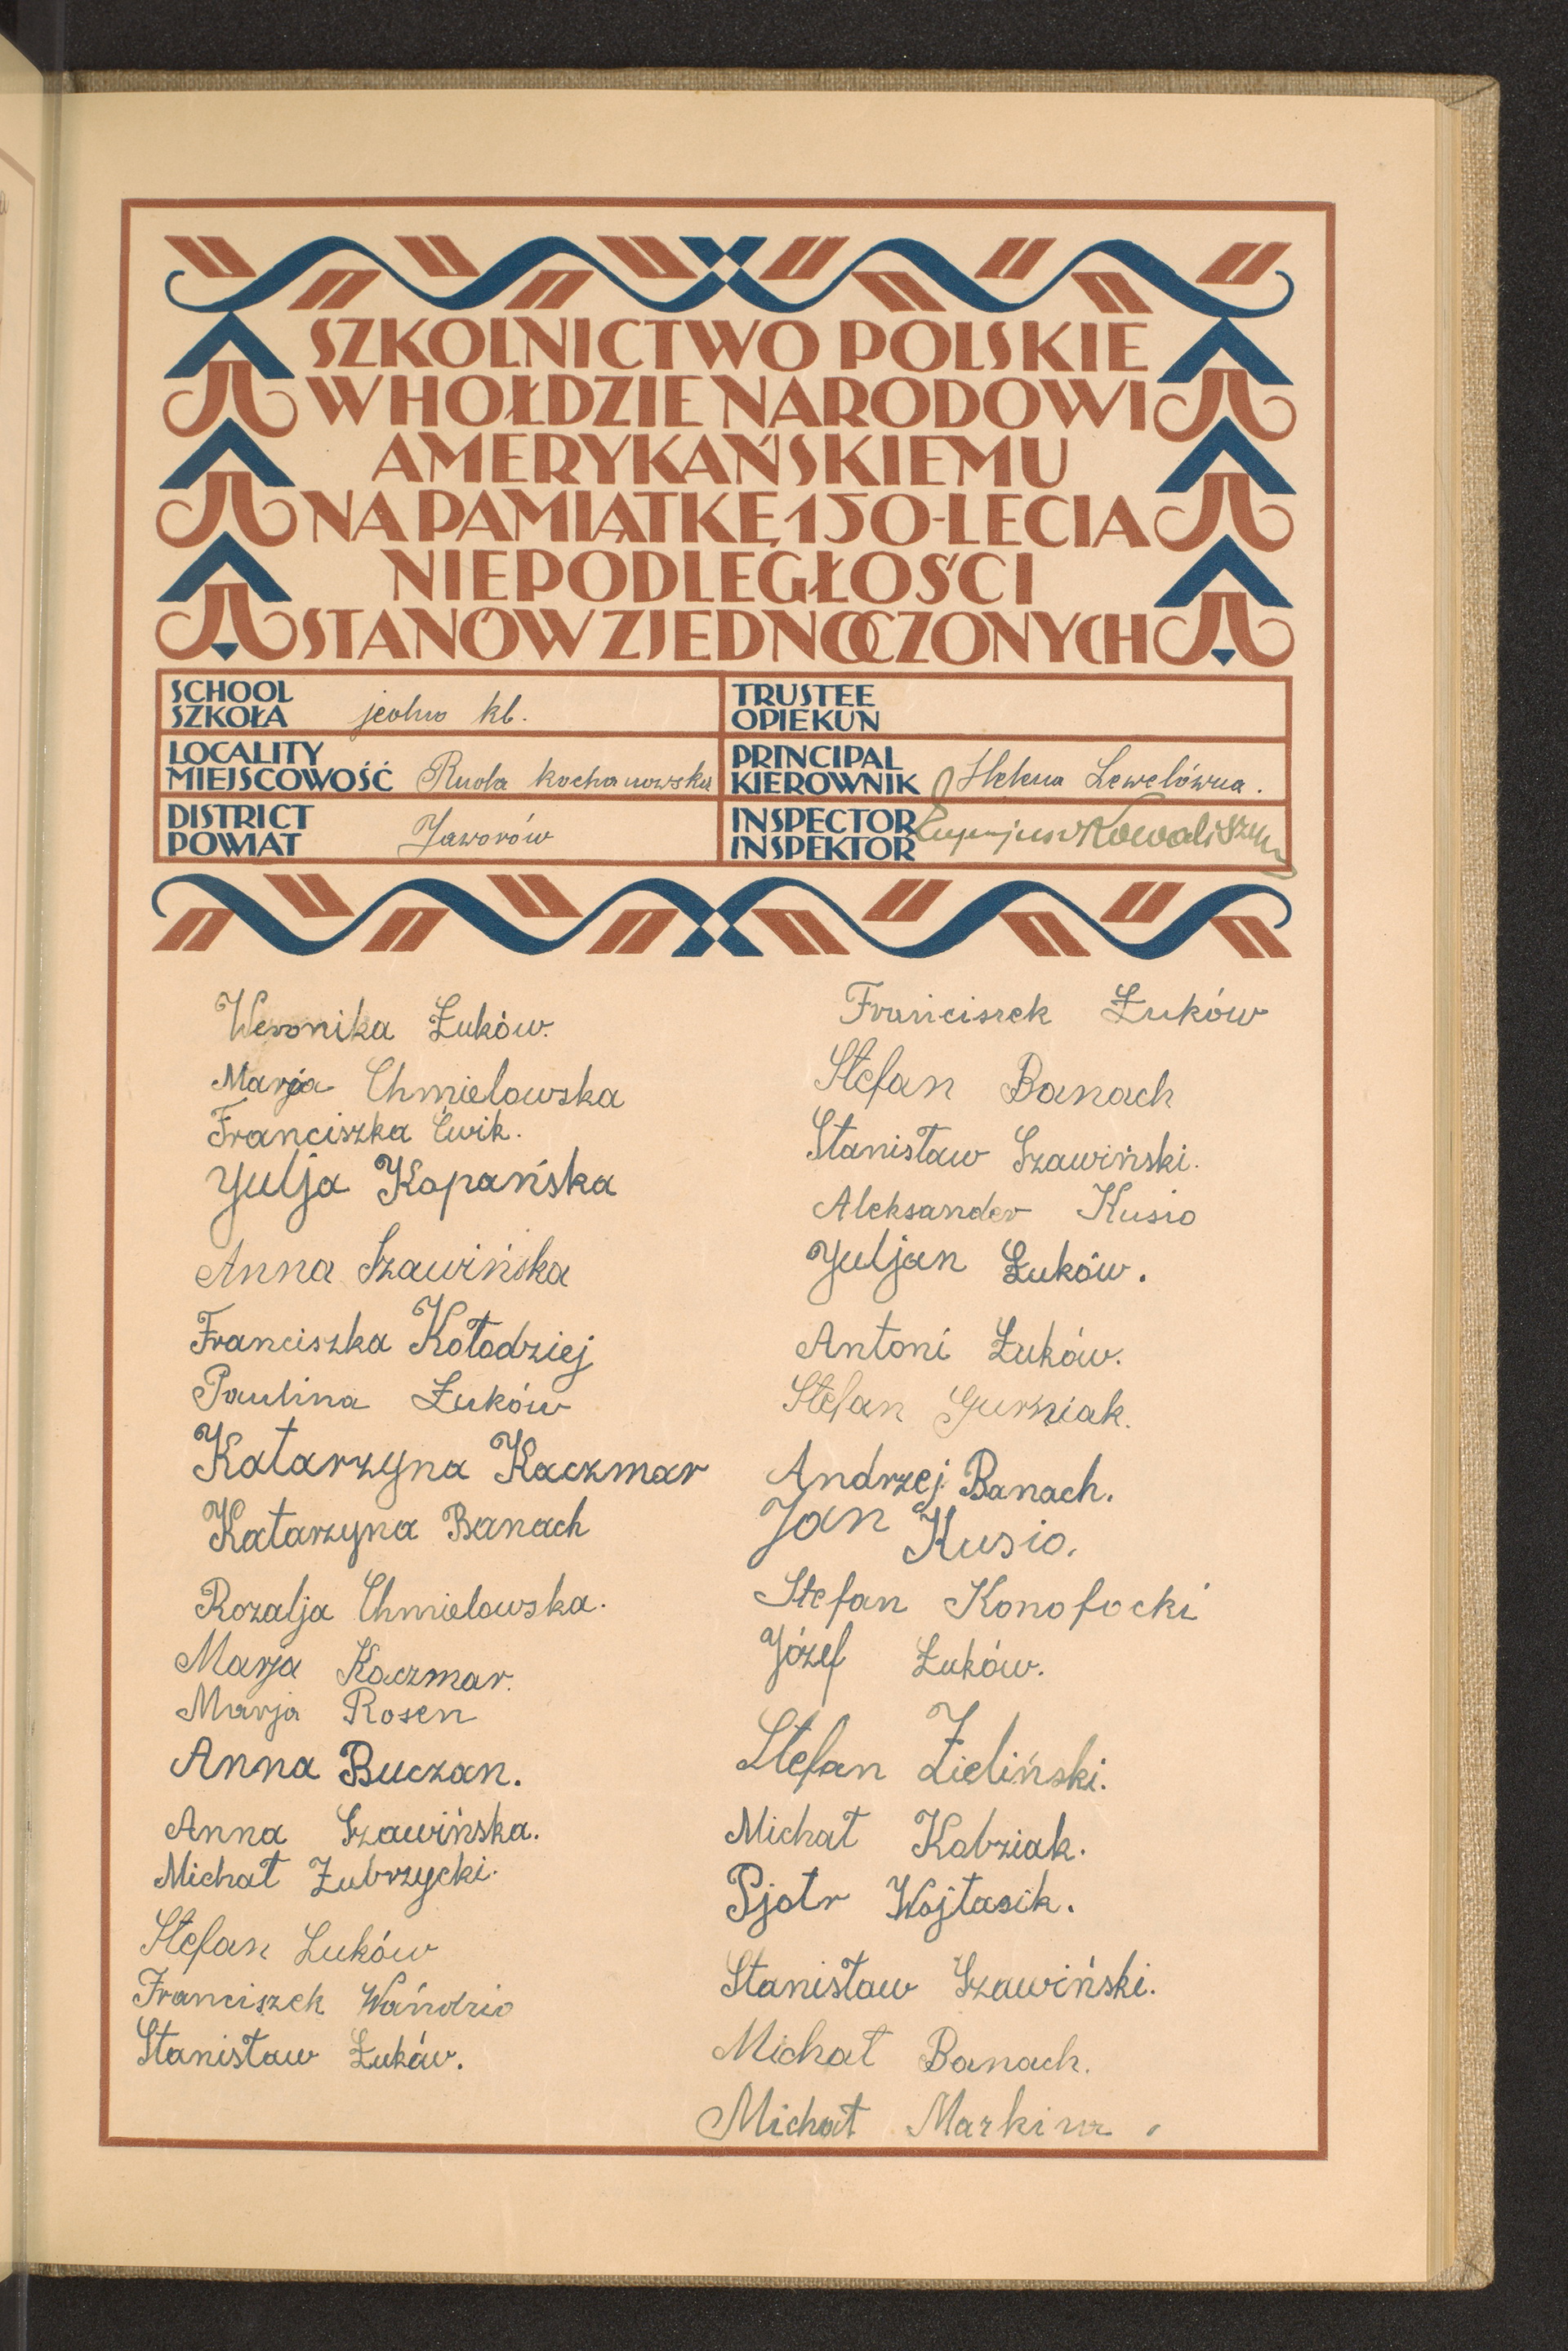 SZKOLNICTWO POLSKIE
W HOŁDZIE NARODOWI
AMERYKAŃSKIEMU
NA PAMIĄTKĘ 150-LECIA
NIEPODLEGŁOŚCI
STANÓW ZJEDNOCZONYCH
SCHOOL
SZKOŁA jedno kl.
TRUSTEE
OPIEKUN
LOCALITY
MIEJSCOWOŚĆ Ruda kochanowska
PRINCIPAL
KIEROWNIK Helena Lewelówna.
DISTRICT
POWIAT Jaworów
INSPECTOR
INSPEKTOR
Weronika Łuków.
Marja Chmielowska
Franciszka Ćwik.
Julja Kopańska
Anna Szawińska
Franciszka Kołodziej
Paulina Łuków
Katarzyna Kaczmar
Katarzyna Banach
Rozalja Chmielowska.
Marja Kaczmar.
Marja Rosen
Anna Buczan.
Anna Szawińska.
Michał Zubrzycki.
Stefan Łuków
Franciszek Wańdzio
Stanisław Łuków.
Franciszek Łuków
Stefan Banach
Stanisław Szawiński.
Aleksander Kusio
Juljan Łuków.
Antoni Łuków.
Stefan Gurniak.
Andrzej Banach.
Jan Kusio.
Stefan Konofocki
Józef Łuków.
Stefan Zieliński.
Michał Kobziak.
Pjotr Wojtasik.
Stanisław Szawiński.
Michał Banach.
Michał